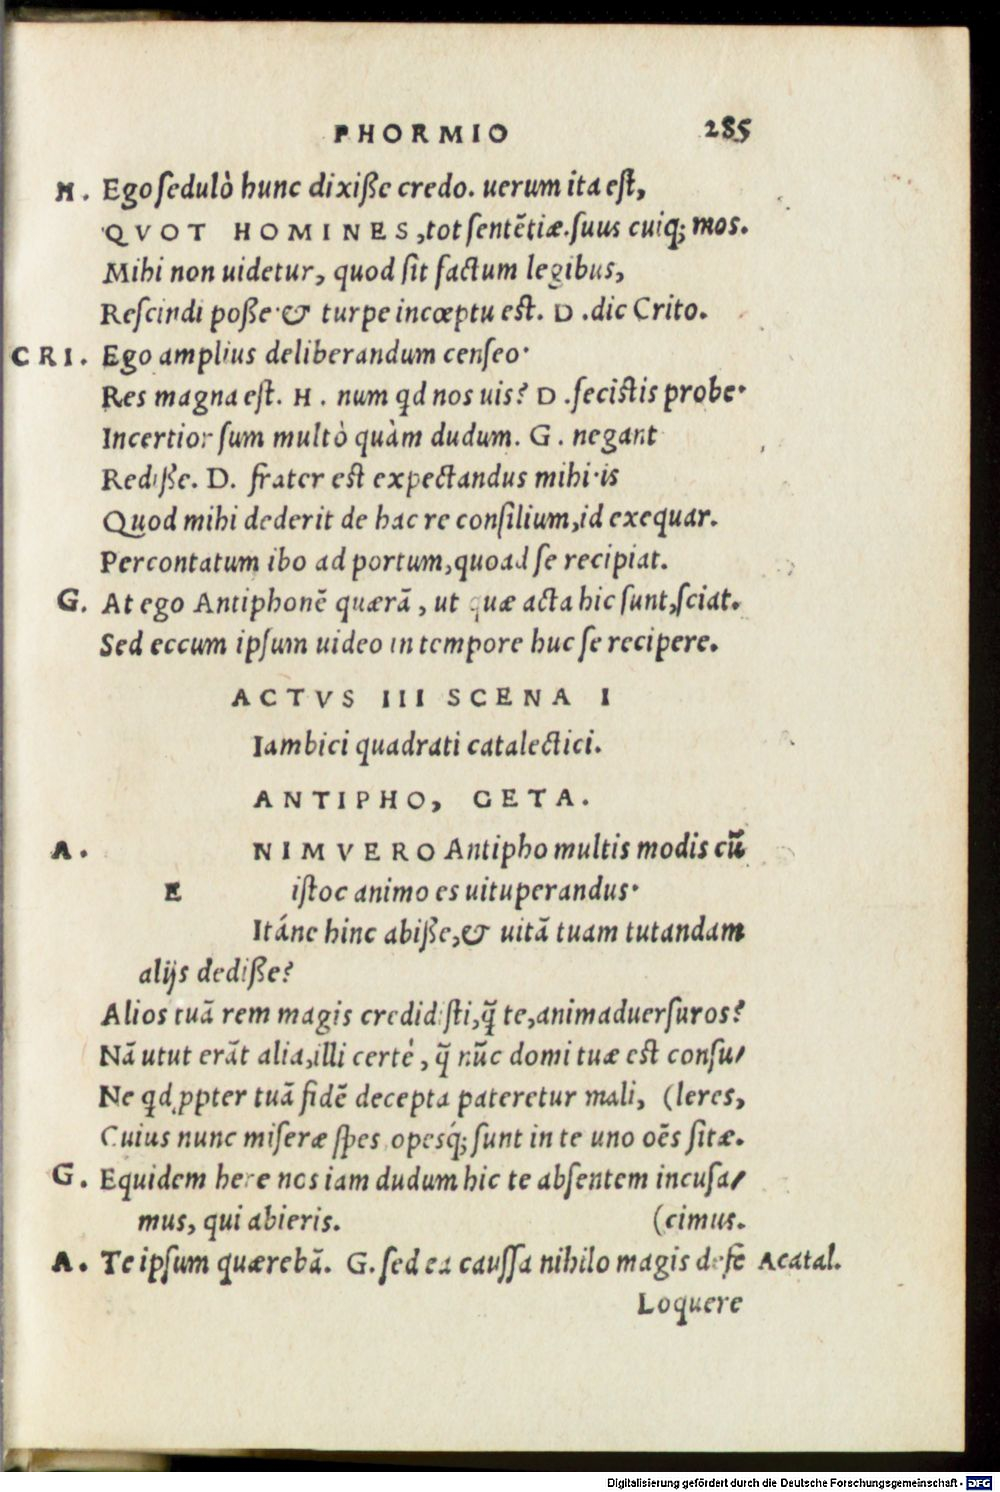 PHORMIO 285
H. Ego ſedulò hunc dixiſſe credo. uerum ita eſt,
QVOT HOMINES, tot ſentẽtiæ. ſuus cuiq; mos.
Mihi non uidetur, quod ſit factum legibus,
Reſcindi poſſe· & turpe incœptu est. D. dic Crito.
CRI. Ego amplius deliberandum cenſeo·
Res magna eſt. H. num qd nos uis? D. feciſtis probe·
Incertior ſum multò quàm dudum. G. negant
Rediſſe. D. frater eſt expectandus mihi· is
Quod mihi dederit de hac re conſilium, id exequar.
Percontatum ibo ad portum, quoad ſe recipiat.
G. At ego Antiphonẽ quærã, ut quæ acta hic ſunt, ſciat.
Sed eccum ipſum uideo in tempore huc ſe recipere.
ACTVS III SCENA I
Iambici quadrati catalectici.
ANTIPHO, GETA.
A. NIMVERO Antipho multis modis cũ
E iſtoc animo es uituperandus·
Itáne hinc abiſſe, & uitã tuam tutandam
alijs dediſſe?
Alios tuã rem magis credidiſti, q̃ te, animaduerſuros?
Nã utut erãt alia, illi certé, q̃ nũc domi tuæ est conſu/
Ne qd ꝓpter tuã fidẽ decepta pateretur mali, (leres,
Cuius nunc miſeræ ſpes opesq́; ſunt in te uno oẽs ſitæ.
G. Equidem here nos iam dudum hic te abſentem incuſa/
mus, qui abieris. (cimus.
A. Te ipſum quærebã. G. ſed ea cauſſa nihilo magis defe Acatal.
Loquere
Digitalisierung gefördert durch die Deutsche Forschungsgemeinschaft - DFG